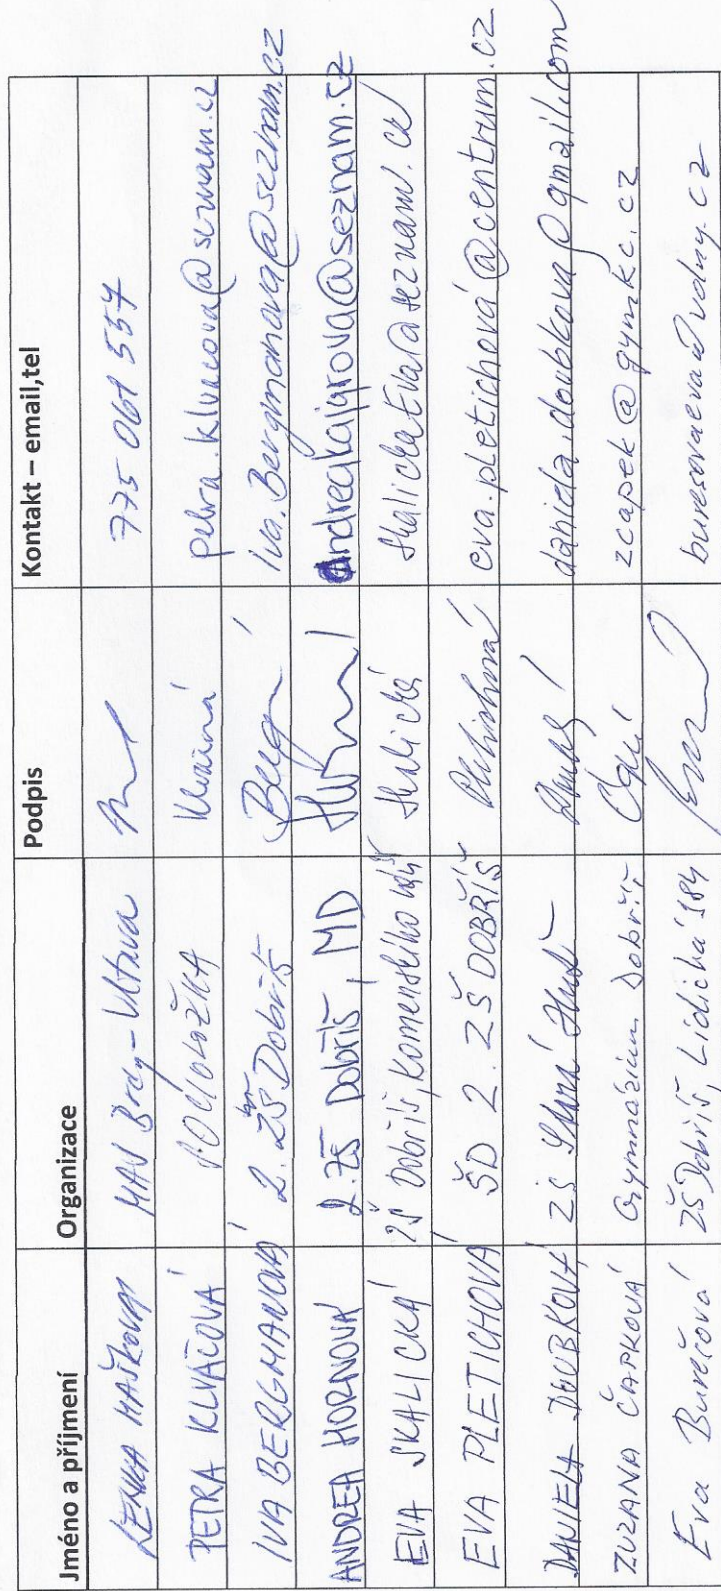 Jméno a příjmení Organizace Podpis Kontakt – email,tel
LENKA HAŠKOVÁ MAS Brdy-Vltava 775 061 557
PETRA KLVAČOVÁ petra.klvacova@seznam.cz
IVA BERGMANOVÁ 2. ZŠ Dobříš Berg Iva.Bergmanova@seznam.cz
ANDREA HORNOVÁ 2. ZŠ Dobříš, MD andreakajprova@seznam.cz
EVA SKALICKÁ ZŠ Dobříš, Komenského nám Skalická SkalickaEva@seznam.cz
EVA PLETICHOVÁ ŠD 2. ZŠ DOBŘÍŠ Pletichová eva.pletichová@centrum.cz
DANIELA DOUBKOVÁ ZŠ Stará Huť daniela.doubkova@gmail.com
ZUZANA ČAPKOVÁ Gymnázium Dobříš zcapek@gymkc.cz
Eva Burešová ZŠ Dobříš, Lidická 384 buresovaeva@volny.cz